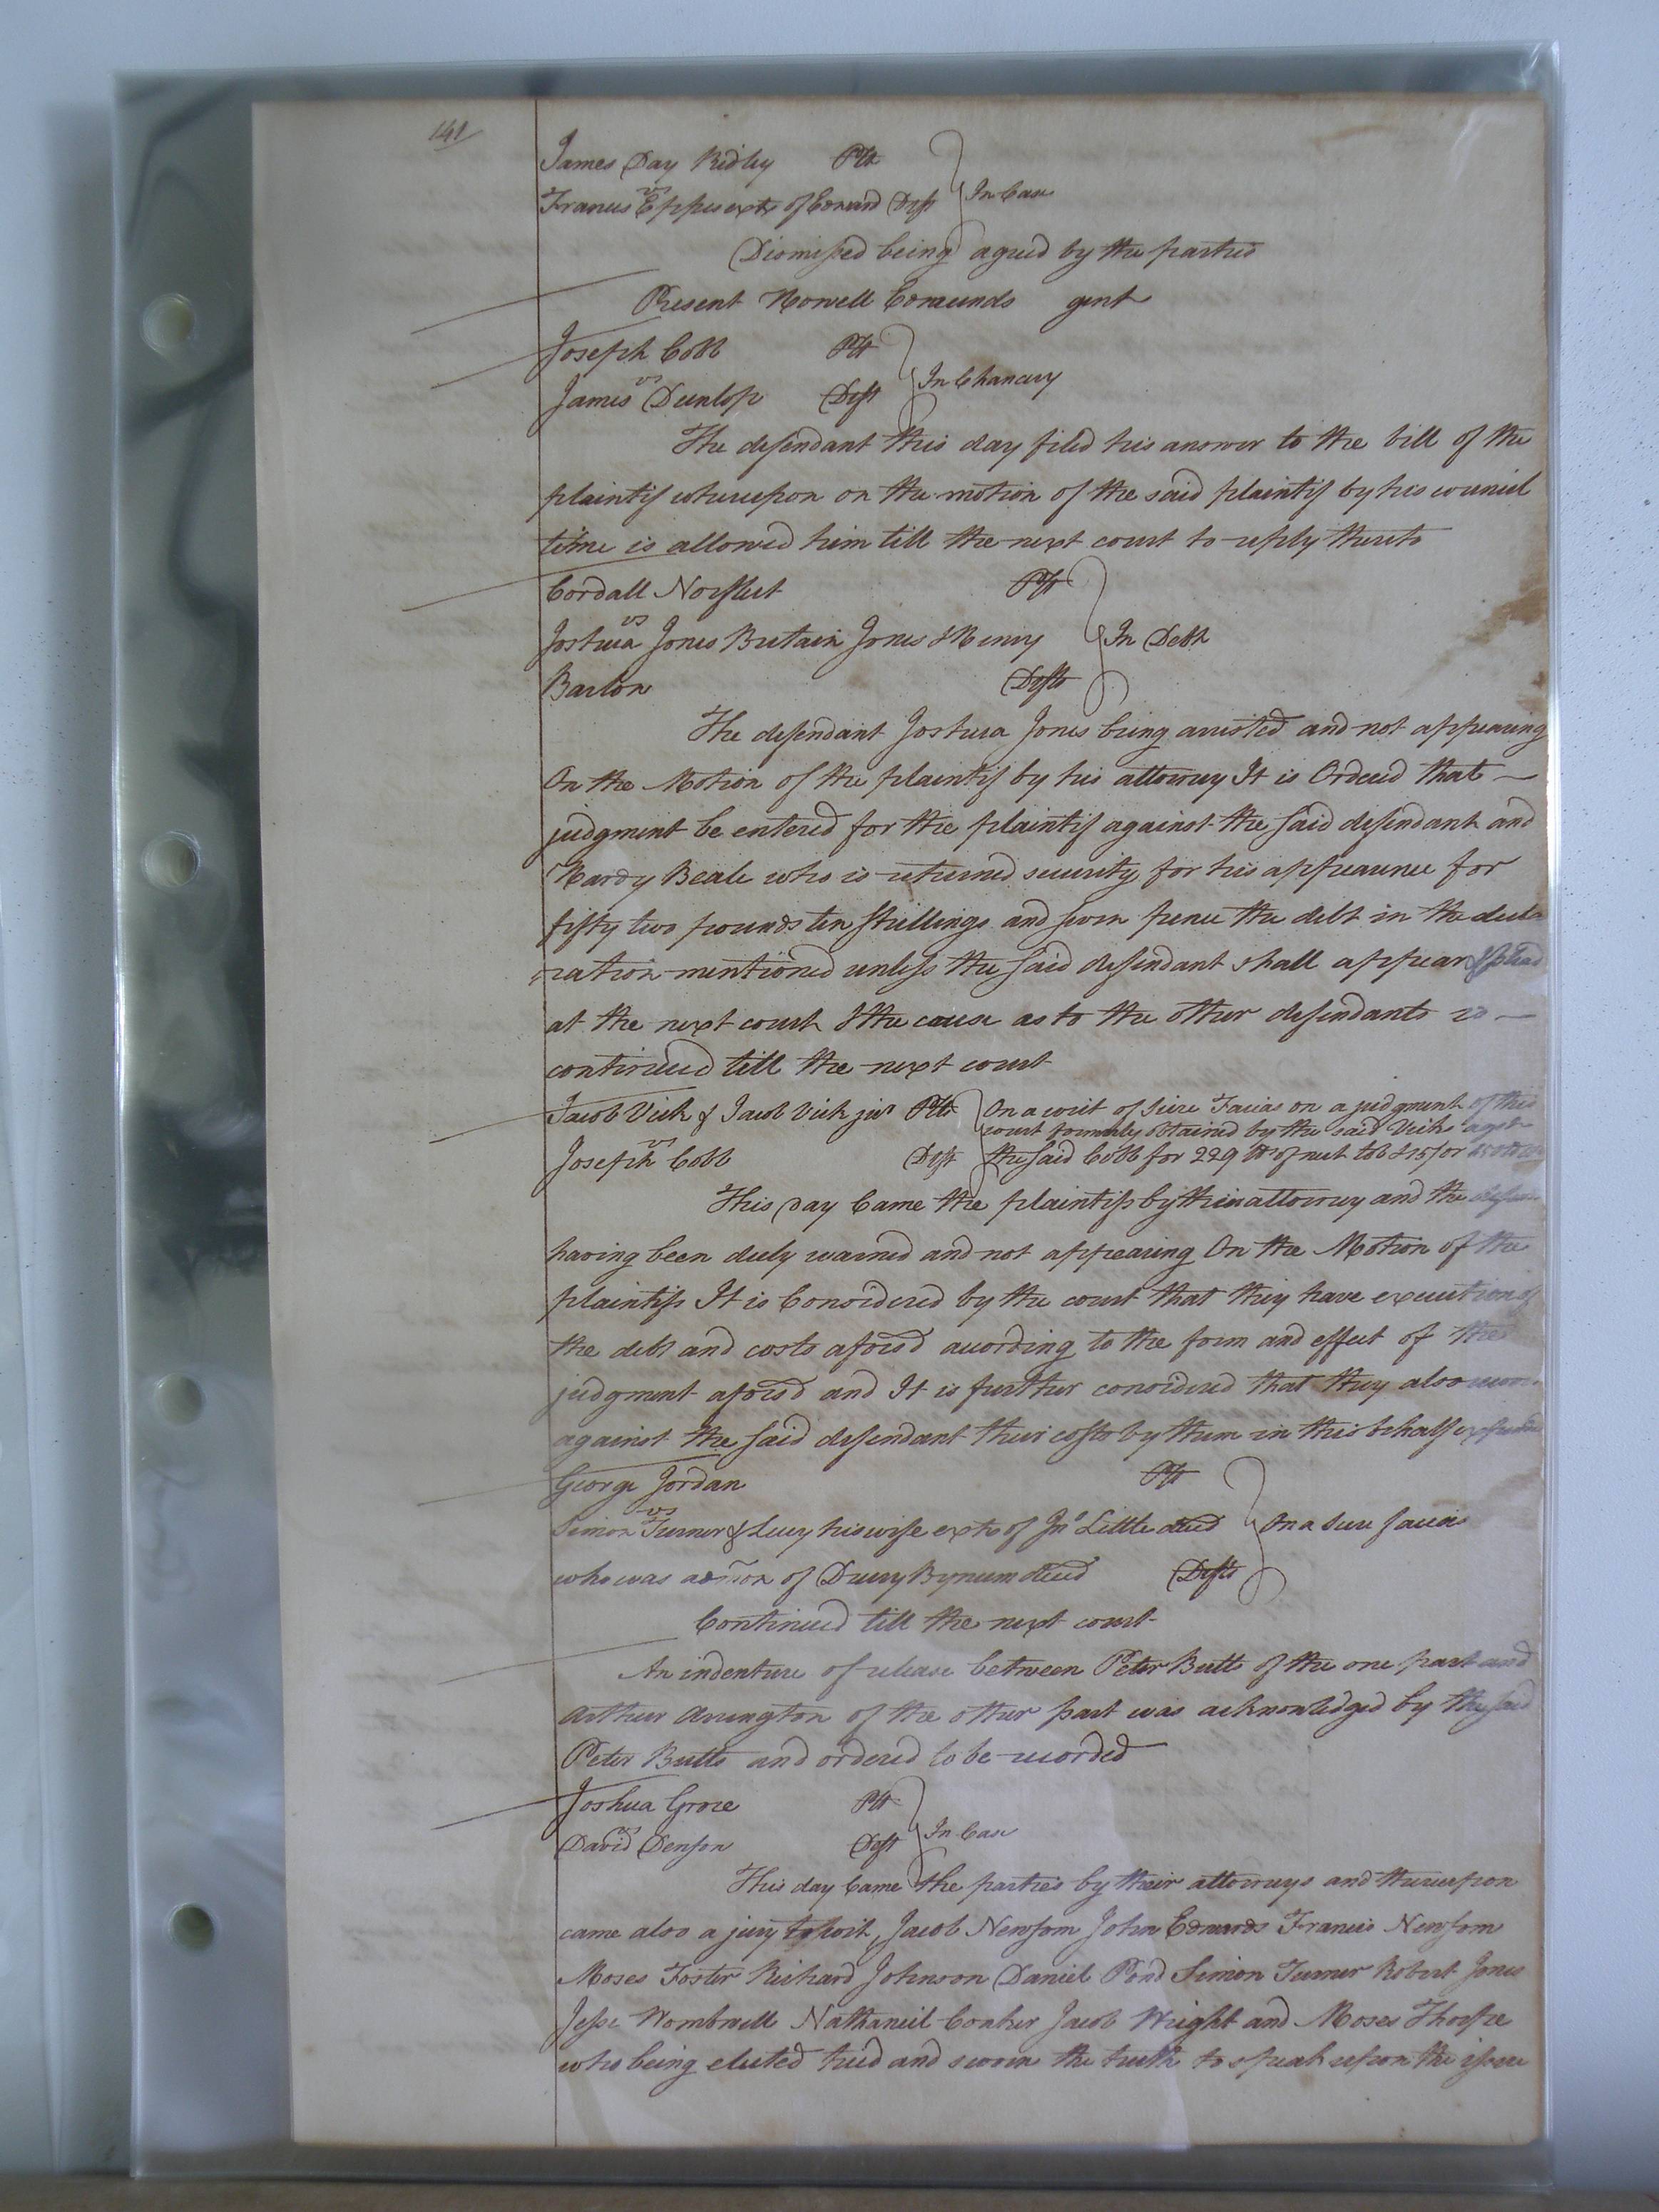 141
James Day Ridley Plt
vs
Francis Eppes exr of Edward Deft } In Case
Dismissed being agreed by the parties
Present Howell Edmunds gent
Joseph Cobb Plt
vs } In Chancery
James Dunlop Deft
The defendant this day filed his answer to the bill of the
plaintif whereupon on the motion of the said plaintif by his counsel
time is allowed him till the next court to reply thereto
Cordall Norfleet Plt
vs
Joshua Jones Britain Jones & Henry } In Debt
Barlow Defts
The defendant Joshua Jones being arrested and not appearing
On the Motion of the plaintif by his attorney It is Ordered that
judgment be entered for the plaintif against the said defendant and
Hardy Beale who is returned security for his appearance for
fifty two pounds ten shillings and seven pence the debt in the decla
ration mentioned unless the said defendant shall appear & plead
at the next court & the cause as to the other defendants is
continued till the next court
Jacob Vick & Jacob Vick junr Plts } On a writ of Scire Facias on a judgment of this
vs court formerly obtained by the said Vicks agst
Joseph Cobb Deft the said Cobb for 229 lb of nett tob & 15/ or
This day Came the plaintifs by their attorney and the
having been duly warned and not appearing On the Motion of the
plaintifs It is Considered by the court that they have execution of
the debt and costs aforesd according to the form and effect of the
judgment aforesd and It is further considered that they also
against the said defendant their costs by them in this behalf expended
George Jordan Plt
vs
Simon Turner & Lucy his wife exrs of Jno Little decd } On a Scire facias
who was admor of Drury Bynum decd Defts
Continued till the next court
An indenture of release between Peter Butts of the one part and
Arthur Arrington of the other part was acknowledged by the said
Peter Butts and ordered to be recorded
Joshua Grore Plt
vs } In Case
David Denson Deft
This day Came the parties by their attorneys and thereupon
came also a jury towit, Jacob Newsom John Edwards Francis Newsom
Moses Foster Richard Johnson Daniel Pond Simon Turner Robert Jones
Jesse Wombwell Nathaniel Conker Jacob Wright and Moses Thorpe
who being elected tried and sworn the truth to speak upon the issue